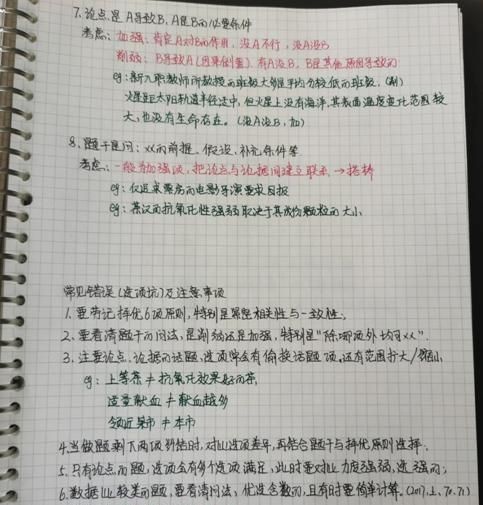 7. 论点是 A导致B, A是B的必要条件
考点: 加强: 肯定A对B的作用, 没A不行, 没A没B
削弱: B导致A(因果倒置), 有A没B, B是其他原因导致的
eg: 新入职教师所教授的班级大多是平均分较低的班级. (削)
火星距太阳轨道半径适中, 但火星上没有海洋, 其表面温度变化范围较
大, 也没有生命存在. (没A没B, 加)
8. 题干是问: xx的前提、假设、补充条件等
考点: 一般为加强项, 把论点与论据间建立联系, → 搭桥
eg: 仅追求票房的电影导演要求回报
eg: 茶汉的抗氧化性强弱取决于其成份颗粒的大小
常见错误(选项坑)及注意事项
1. 要劳记择优6项原则, 特别是紧密相关性与一致性;
2. 要看清题干的问法, 是削弱还是加强, 特别是"除哪项外均可xx".
3. 注意论点、论据的话题, 选项常会有偷换话题项, 还有范围扩大/缩小
eg: 上等茶 ≠ 抗氧化效果好的茶
适量献血 ≠ 献血越多
邻近某市 ≠ 本市
4. 当做题剩下两项纠结时, 对比选项差异, 再结合题干与择优原则选择.
5. 只有论点的题, 选项会有多个选项满足, 此时要对比力度强弱, 选强的;
6. 数据比较类的题, 要看清问法, 优选含数的, 且有时要简单计算. (2017.上、70.71)